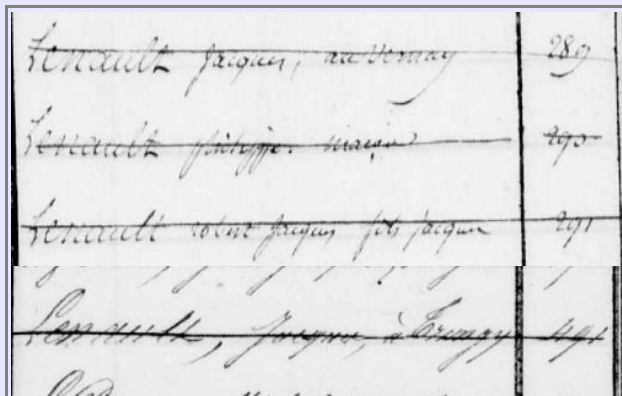 Lenault Jacques, au Vernay 289
Lenault philippe maçon 290
Lenault robert Jacques fils jacques 291
Lenault, Jacques, à Trungy 491